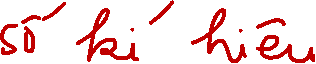 số kí hiêu